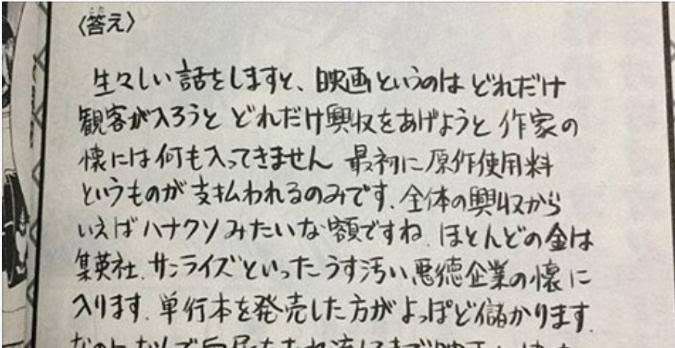 〈答え〉
生々しい話をしますと、映画というのはどれだけ
観客が入ろうとどれだけ興収をあげようと作家の
懐には何も入ってきません 最初に原作使用料
というものが支払われるのみです.全体の興収から
いえばハナクソみたいな額ですね.ほとんどの金は
集英社.サンライズといったうす汚い悪徳企業の懐に
入ります.単行本を発売した方がよっぽど儲かります.